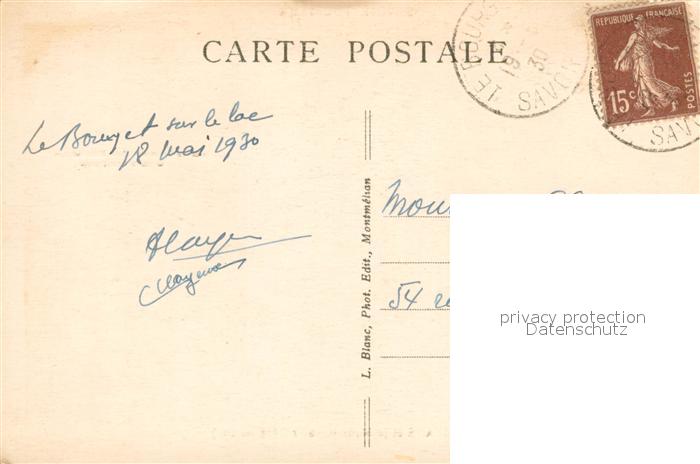 CARTE POSTALE
LE BOURG
19 - 30
SAVOI
REPUBLIQUE FRANÇAISE
15c
POSTES
SAVO
Le Bourget sur le lac
18 mai 1930
L. Blanc, Phot. Edit., Montmélian
54
privacy protection
Datenschutz